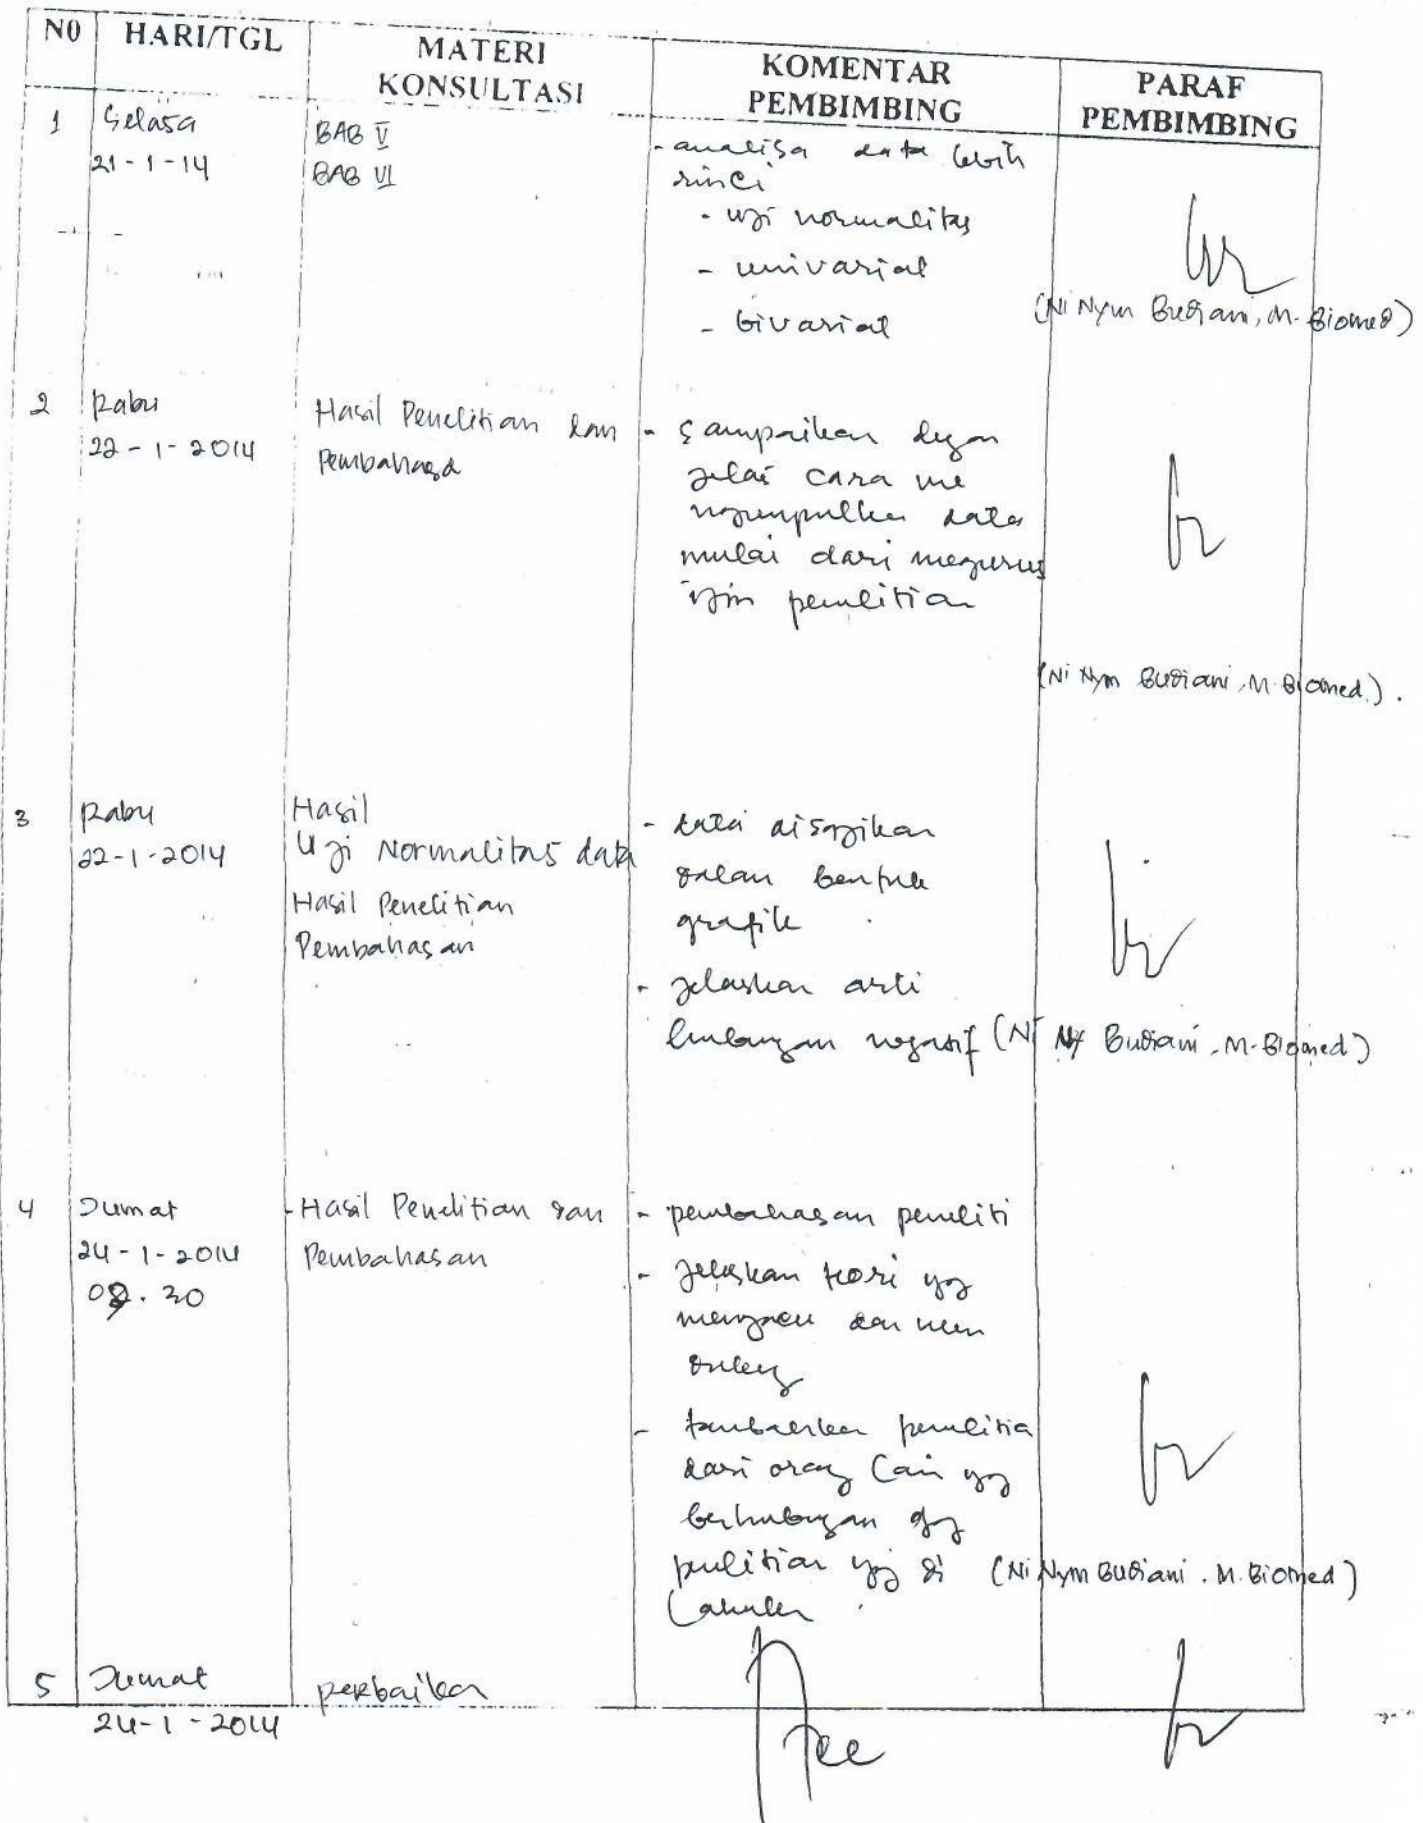 N0 HARI/TGL MATERI KONSULTASI KOMENTAR PEMBIMBING PARAF PEMBIMBING
1
Selasa
21-1-14
BAB V
BAB VI
- analisa data lebih
rinci
- uji normalitas
- univariat
- bivariat
(Ni Nym Budiani, M. Biomed)
2
Rabu
22-1-2014
Hasil Penelitian dan
Pembahasa
- Sampaikan degan
jelas cara me
ngumpulka data
mulai dari megurus
ijin penelitian
(Ni Nym Budiani, M. Biomed).
3
Rabu
22-1-2014
Hasil
Uji Normalitas data
Hasil Penelitian
Pembahasan
- data disajikan
dalam bentuk
grafik
- jelaskan arti
hubungan negatif
(Ni Budiani, M. Biomed)
4
Jumat
24-1-2014
30
- Hasil Penelitian dan
Pembahasan
- pembahasan peneliti
- jelaskan teori yg
mengacu dan men
dukung
- tambahkan penelitia
dari orang lain yg
berhubungan dg
penelitian yg di
lakukan
(Ni Nym Budiani. M. Biomed)
5
Jumat
24-1-2014
perbaikan
Acc